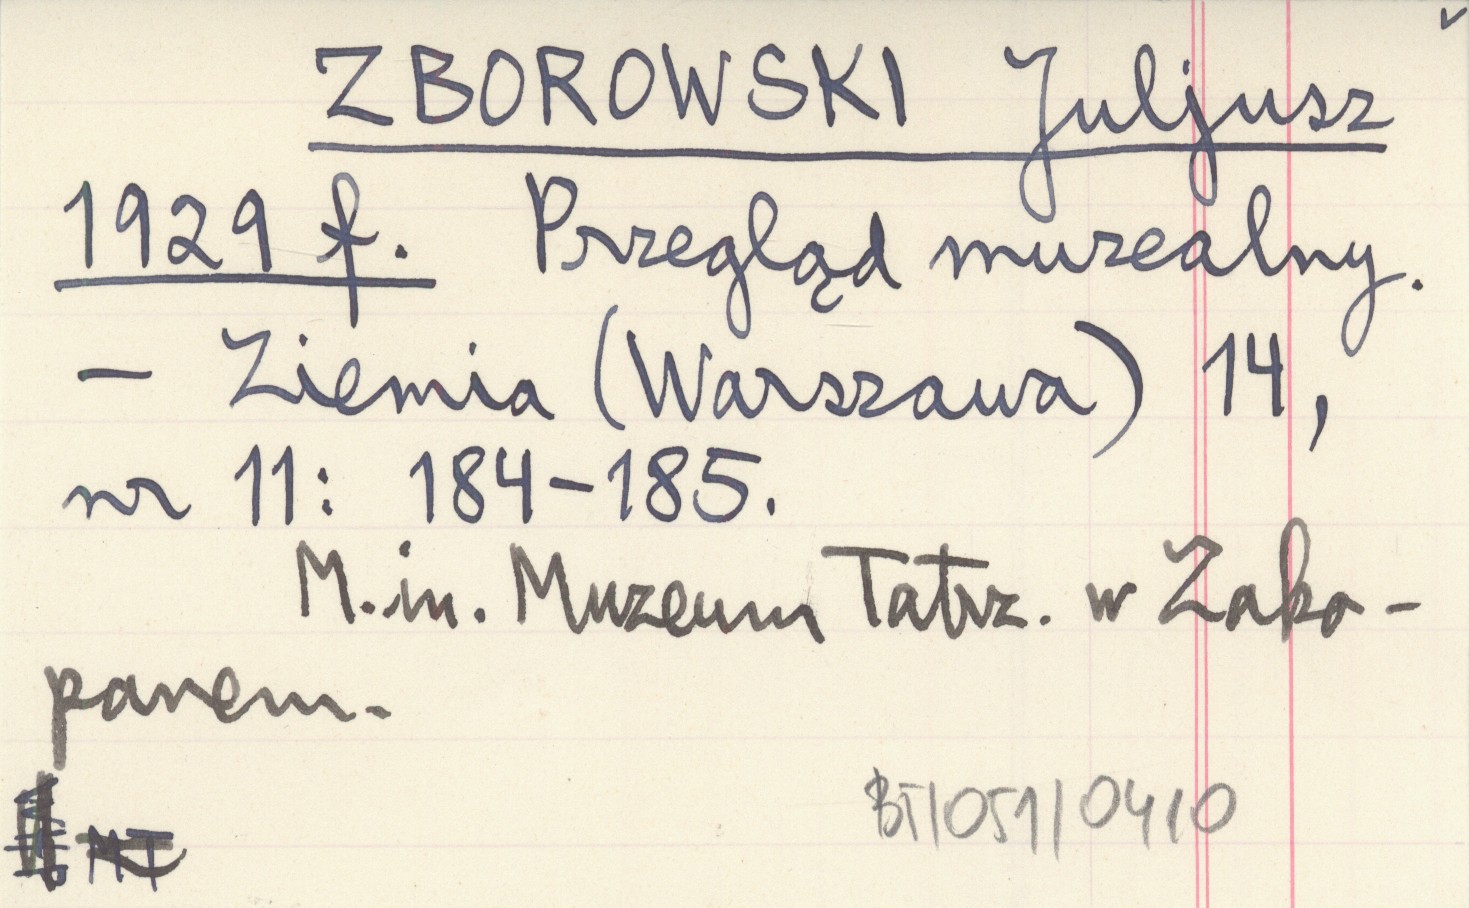 ZBOROWSKI Juljusz
1929 f. Przegląd muzealny.
– Ziemia (Warszawa) 14,
nr 11: 184–185.
M.in. Muzeum Tatrz. w Zako-
panem.
BT/051/0410
MT